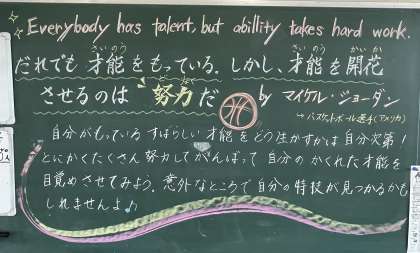 Everybody has talent, but abillity takes hard work.
だれでも 才能をもっている。しかし、才能を開花
させるのは "努力" だ
by マイケル・ジョーダン
→バスケットボール選手(アメリカ)
自分がもっているすばらしい才能をどう生かすかは自分次第!
とにかくたくさん努力してがんばって自分のかくれた才能を
目覚めさせてみよう。意外なところで自分の特技が見つかるかも
しれませんよ♪